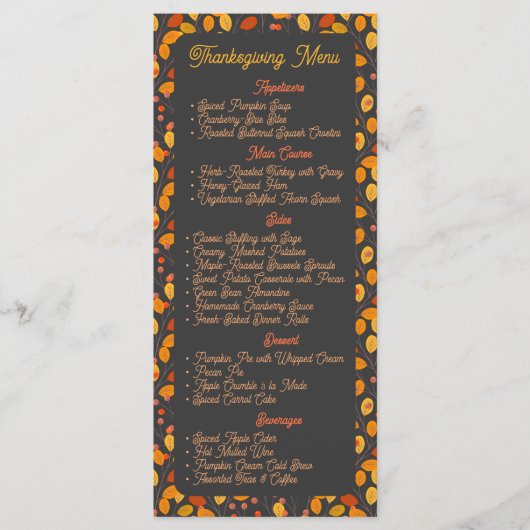 Thanksgiving Menu
Appetizers
• Spiced Pumpkin Soup
• Cranberry-Brie Bites
• Roasted Butternut Squash Crostini
Main Course
• Herb-Roasted Turkey with Gravy
• Honey-Glazed Ham
• Vegetarian Stuffed Acorn Squash
Sides
• Classic Stuffing with Sage
• Creamy Mashed Potatoes
• Maple-Roasted Brussels Sprouts
• Sweet Potato Casserole with Pecan
• Green Bean Almandine
• Homemade Cranberry Sauce
• Fresh-Baked Dinner Rolls
Dessert
• Pumpkin Pie with Whipped Cream
• Pecan Pie
• Apple Crumble à la Mode
• Spiced Carrot Cake
Beverages
• Spiced Apple Cider
• Hot Mulled Wine
• Pumpkin Cream Cold Brew
• Assorted Teas & Coffee